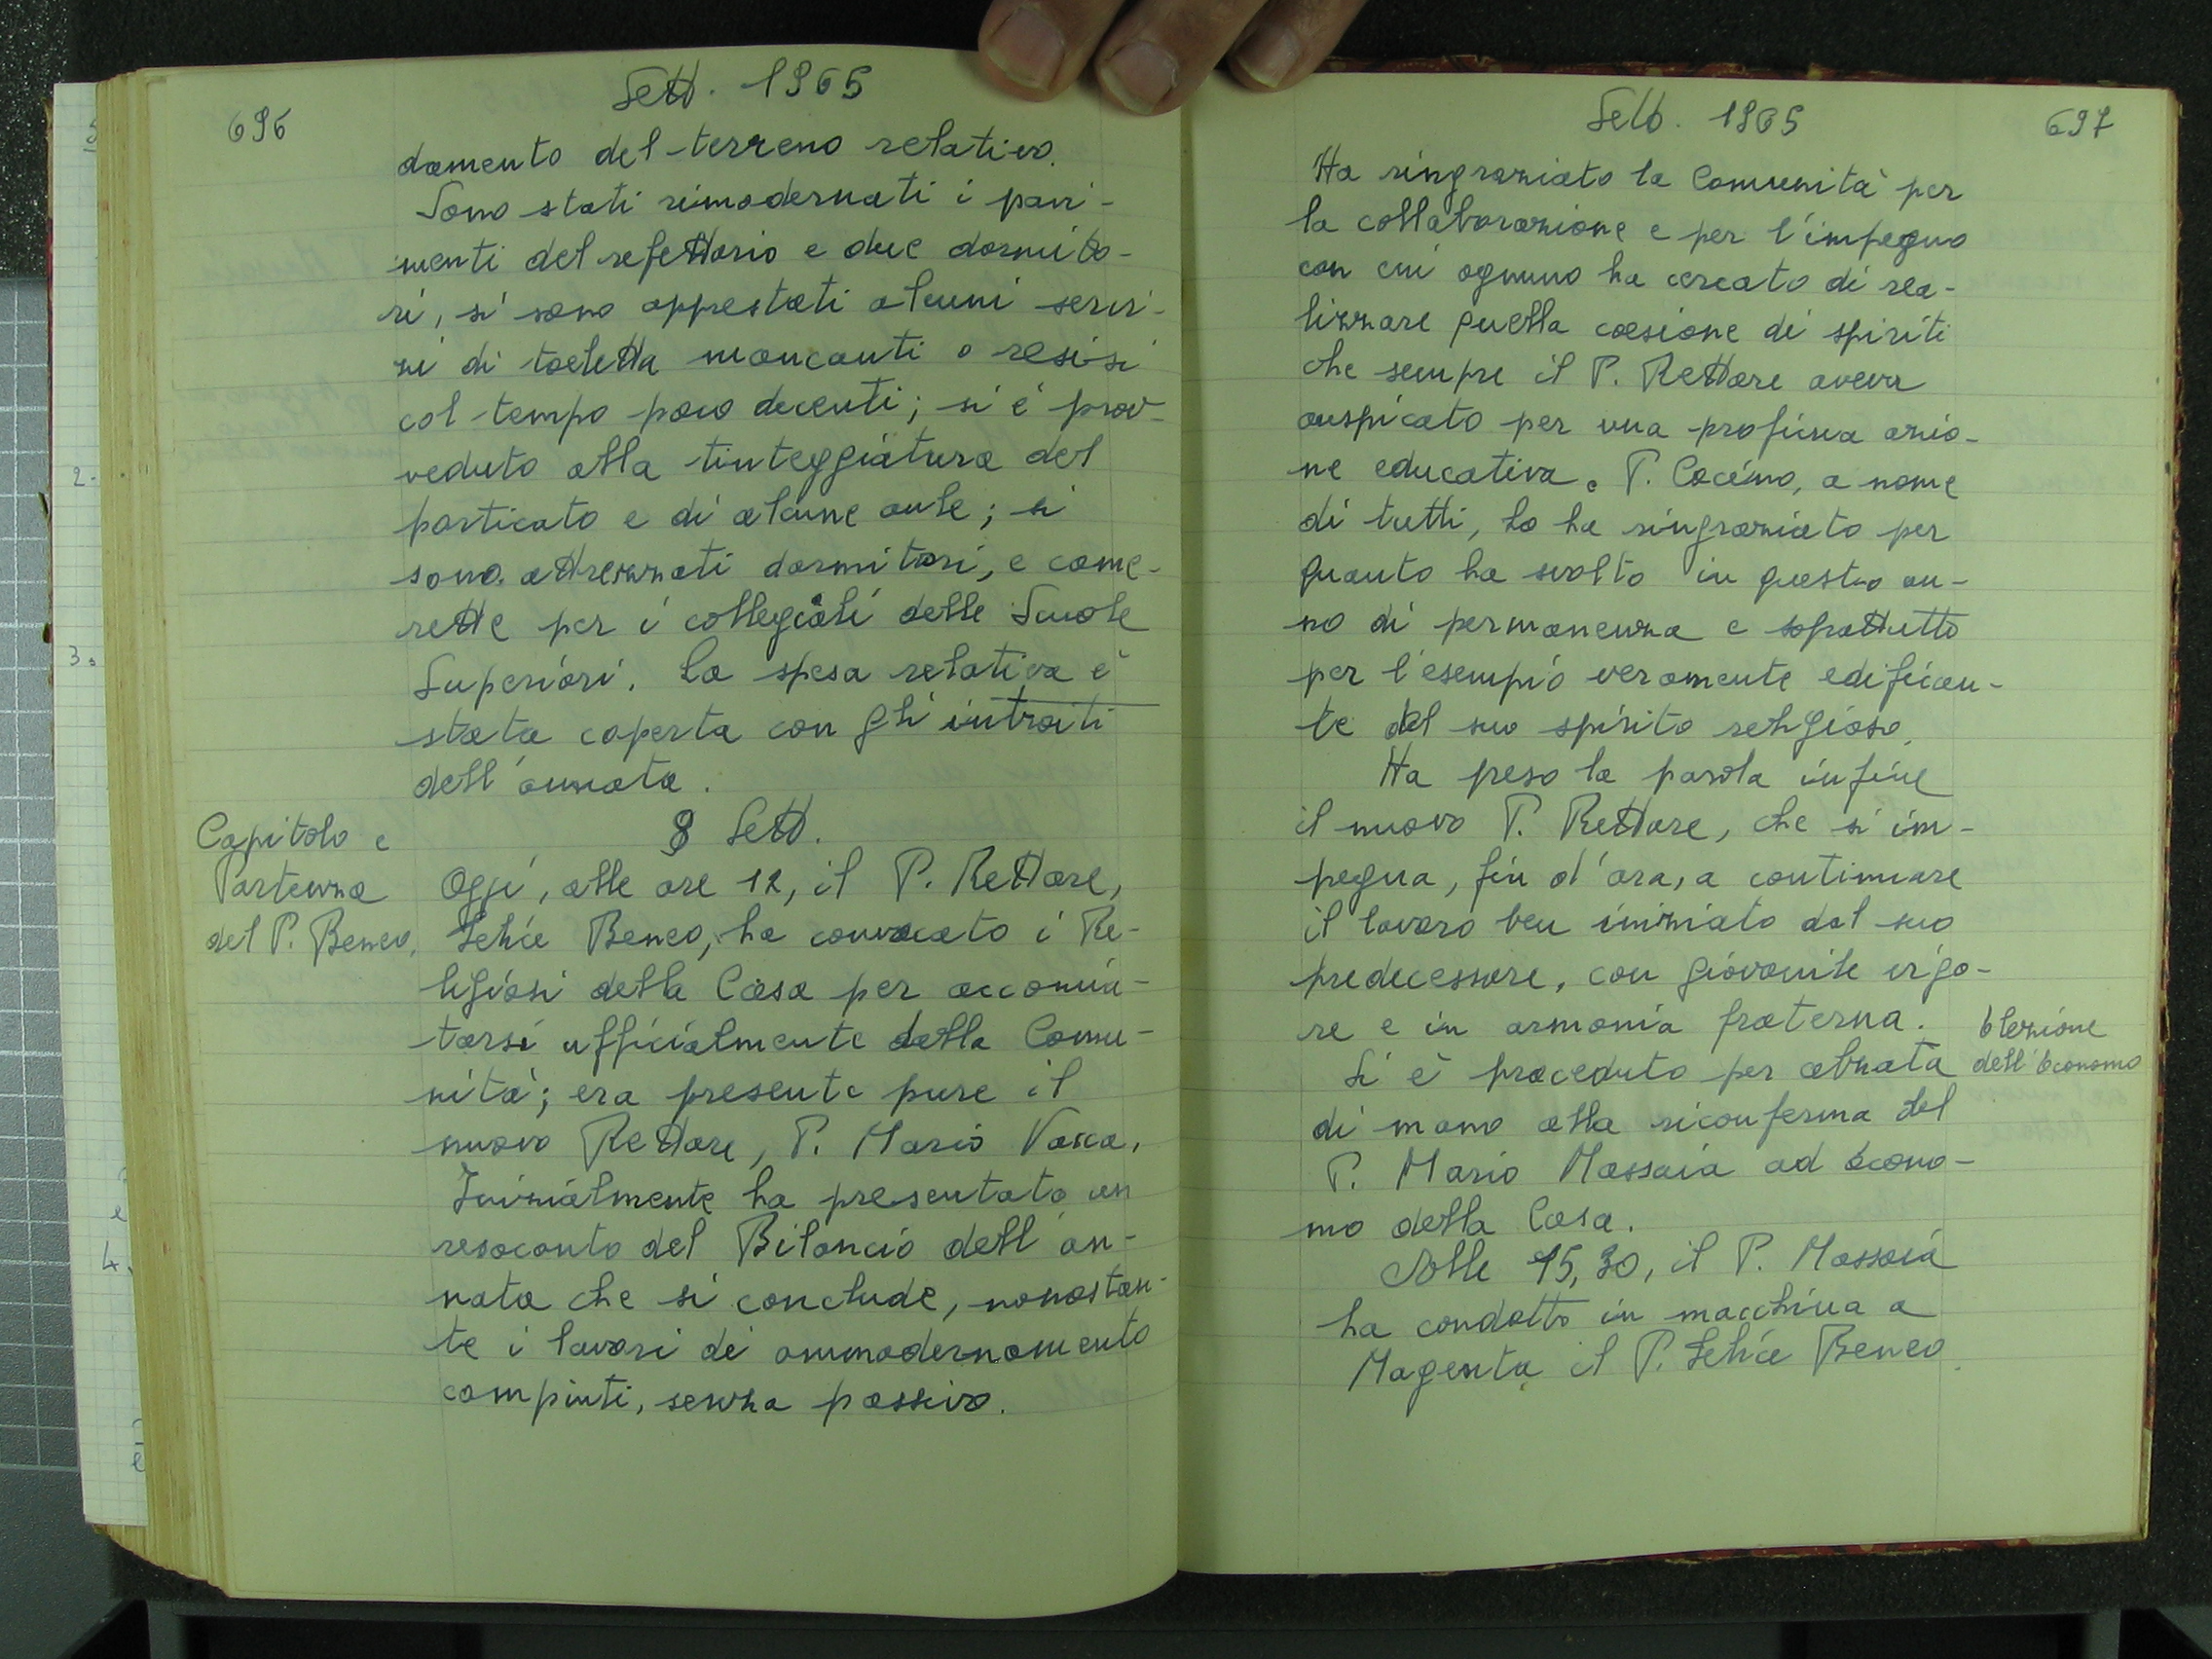 696
Sett. 1965
damento del terreno relativo.
Sono stati rimodernati i pavi-
menti del refettorio e due dormito-
ri, si sono apprestati alcuni servi-
zi di toeletta mancanti o resisi
col tempo poco decenti; si è prov-
veduto alla tinteggiatura del
porticato e di alcune aule; si
sono attrezzati dormitori, e came-
rette per i collegiali delle Scuole
Superiori. La spesa relativa è
stata coperta con gli introiti
dell'annata.
8 Sett.
Capitolo e
Partenza
del P. Beneo.
Oggi, alle ore 12, il P. Rettore,
Felice Beneo, ha convocato i Re-
ligiosi della Casa per accomia-
tarsi ufficialmente dalla Comu-
nità; era presente pure il
nuovo Rettore, P. Mario Vacca.
Inizialmente ha presentato un
resoconto del Bilancio dell'an-
nata che si conclude, nonostan-
te i lavori di ammodernamento
compiuti, senza passivo.
Sett. 1965
697
Ha ringraziato la Comunità per
la collaborazione e per l'impegno
con cui ognuno ha cercato di rea-
lizzare quella coesione di spiriti
che sempre il P. Rettore aveva
auspicato per una proficua azio-
ne educativa. P. Cocimo, a nome
di tutti, lo ha ringraziato per
quanto ha svolto in questo an-
no di permanenza e soprattutto
per l'esempio veramente edifican-
te del suo spirito religioso.
Ha preso la parola infine
il nuovo P. Rettore, che si im-
pegna, fin d'ora, a continuare
il lavoro ben iniziato dal suo
predecessore, con giovanile vigo-
re e in armonia fraterna.
Elezione
dell'Economo
Si è proceduto per alzata
di mano alla riconferma del
P. Mario Massaia ad Econo-
mo della Casa.
Alle 15,30, il P. Massaia
ha condotto in macchina a
Magenta il P. Felice Beneo.